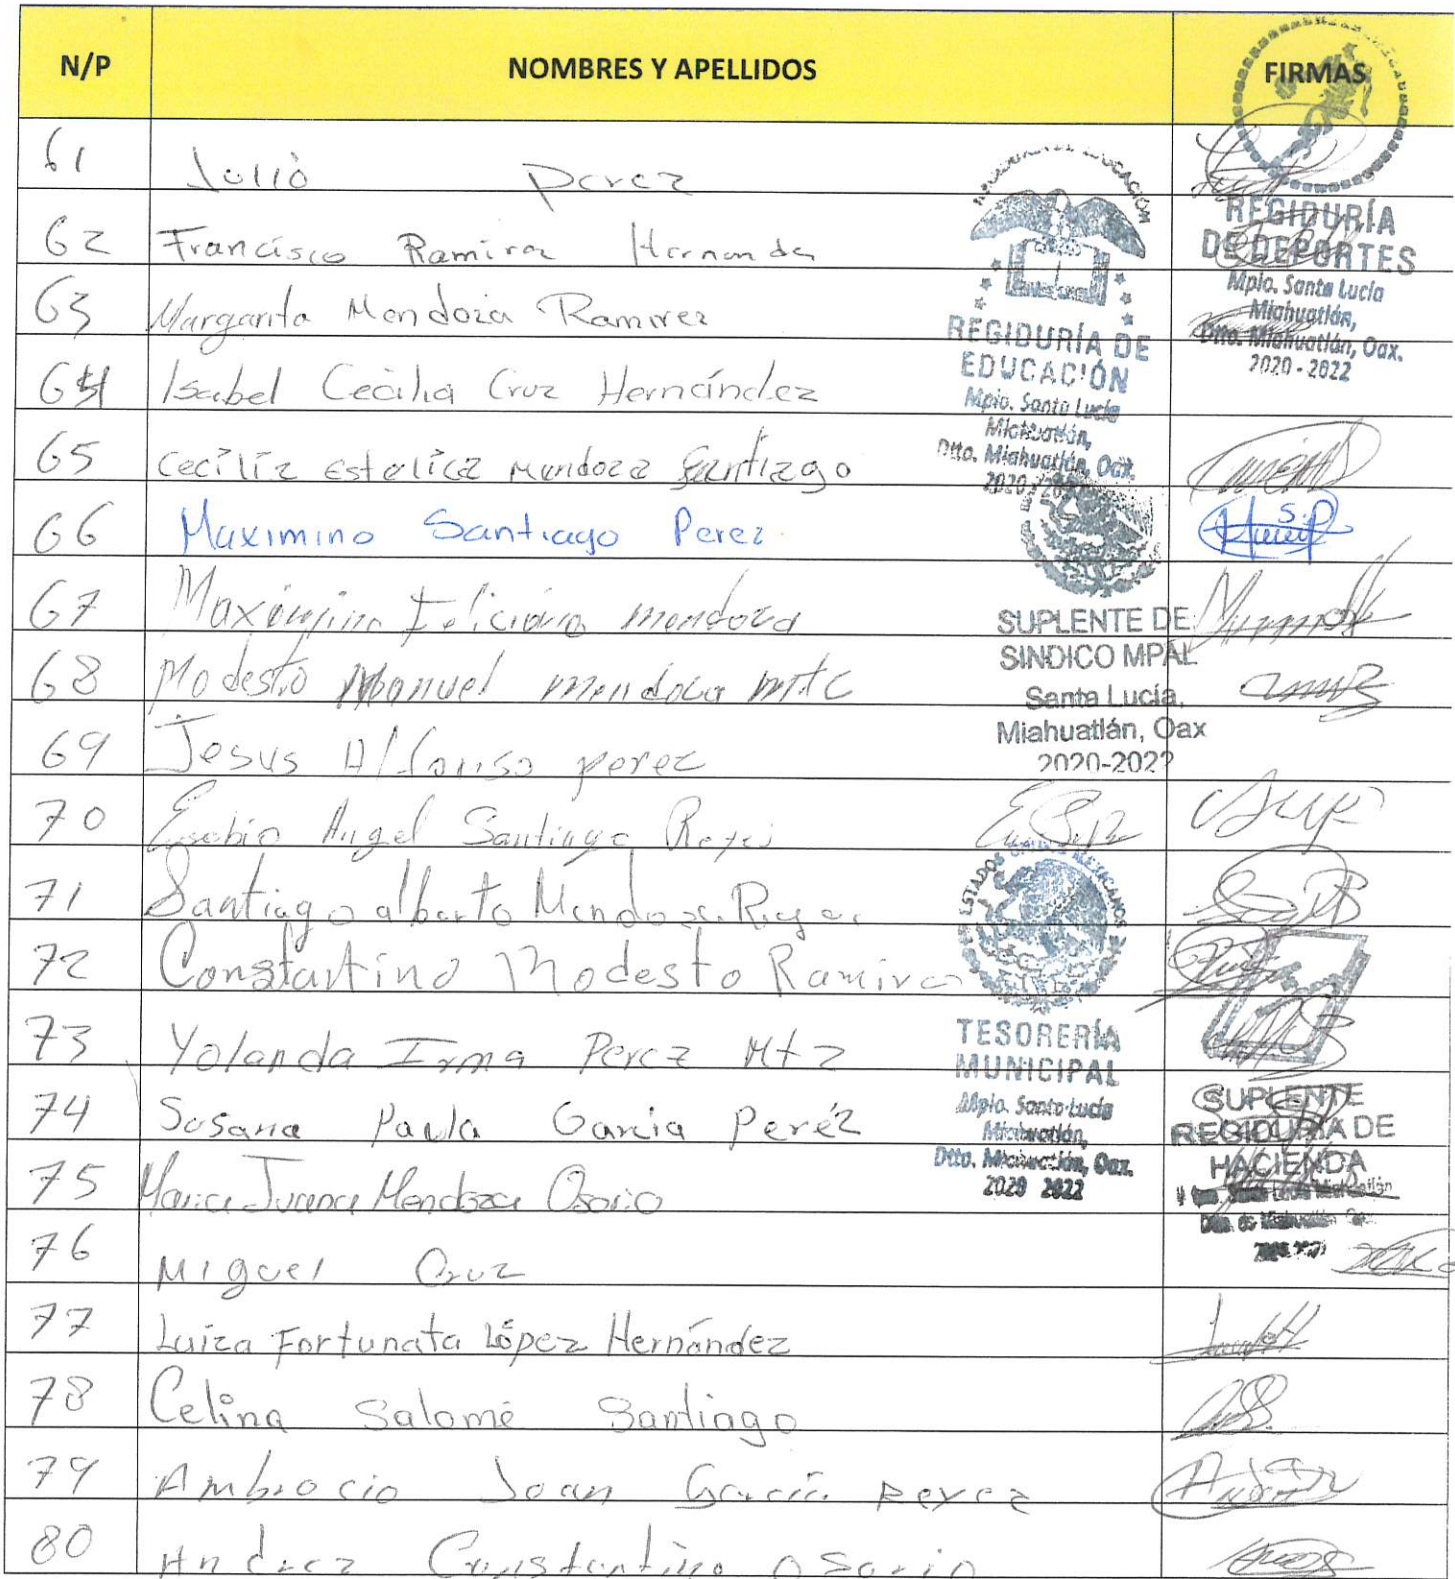 N/P NOMBRES Y APELLIDOS FIRMAS
61 Julio Perez
62 Francisco Ramirez Hernandez
63 Margarita Mendoza Ramirez
64 Isabel Cecilia Cruz Hernández
65 Cecilia Estelica Mendoza Santiago
66 Maximino Santiago Perez
67 Maximino Feliciano mendoza
68 Modesto Manuel mendoza mtz
69 Jesus Alfonso perez
70 Eusebio Angel Santiago Reyes
71 Santiago alberto Mendoza Reyes
72 Constantino Modesto Ramirez
73 Yolanda Irma Perez Mtz
74 Susana Paula Garcia Peréz
75 Maria Juana Mendoza Osorio
76 Miguel Cruz
77 Luiza Fortunata López Hernández
78 Celina Salomé Santiago
79 Ambrocio Joan García Perez
80 Andrez Constantino Osorio
REGIDURÍA
DE DEPORTES
Mpio. Santa Lucía
Miahuatlán,
Dtto. Miahuatlán, Oax.
2020 - 2022
EDUCACIÓN
REGIDURÍA DE
EDUCACIÓN
Mpio. Santa Lucía
Miahuatlán,
Dtto. Miahuatlán, Oax.
S.P
SUPLENTE DE
SINDICO MPAL
Santa Lucía,
Miahuatlán, Oax
2020-2022
ESTADOS UNIDOS MEXICANOS
TESORERÍA
MUNICIPAL
Mpio. Santa Lucía
Miahuatlán,
Dtto. Miahuatlán, Oax.
2020 2022
SUPLENTE
REGIDURIA DE
HACIENDA